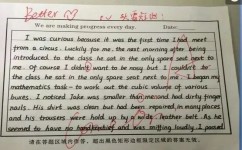 Better
We are making progress every day. Date:
I was curious because it was the first time I had met
from a circus. Luckily for me, the next morning after being
introduced to the class he sat in the only spare seat next to
me. Of course I didn't want to be nosy but I couldn't to
the class he sat in the only spare seat next to me. I began my
mathematics task - to work out the cubic volume of various
boxes. I noticed Jake was smaller than me and had dirty finger
nails. His shirt was clean but had been repaired in many places
and his trousers were held up by a leather belt. As he
seemed to have no handkerchief and was sniffing loudly, I passed